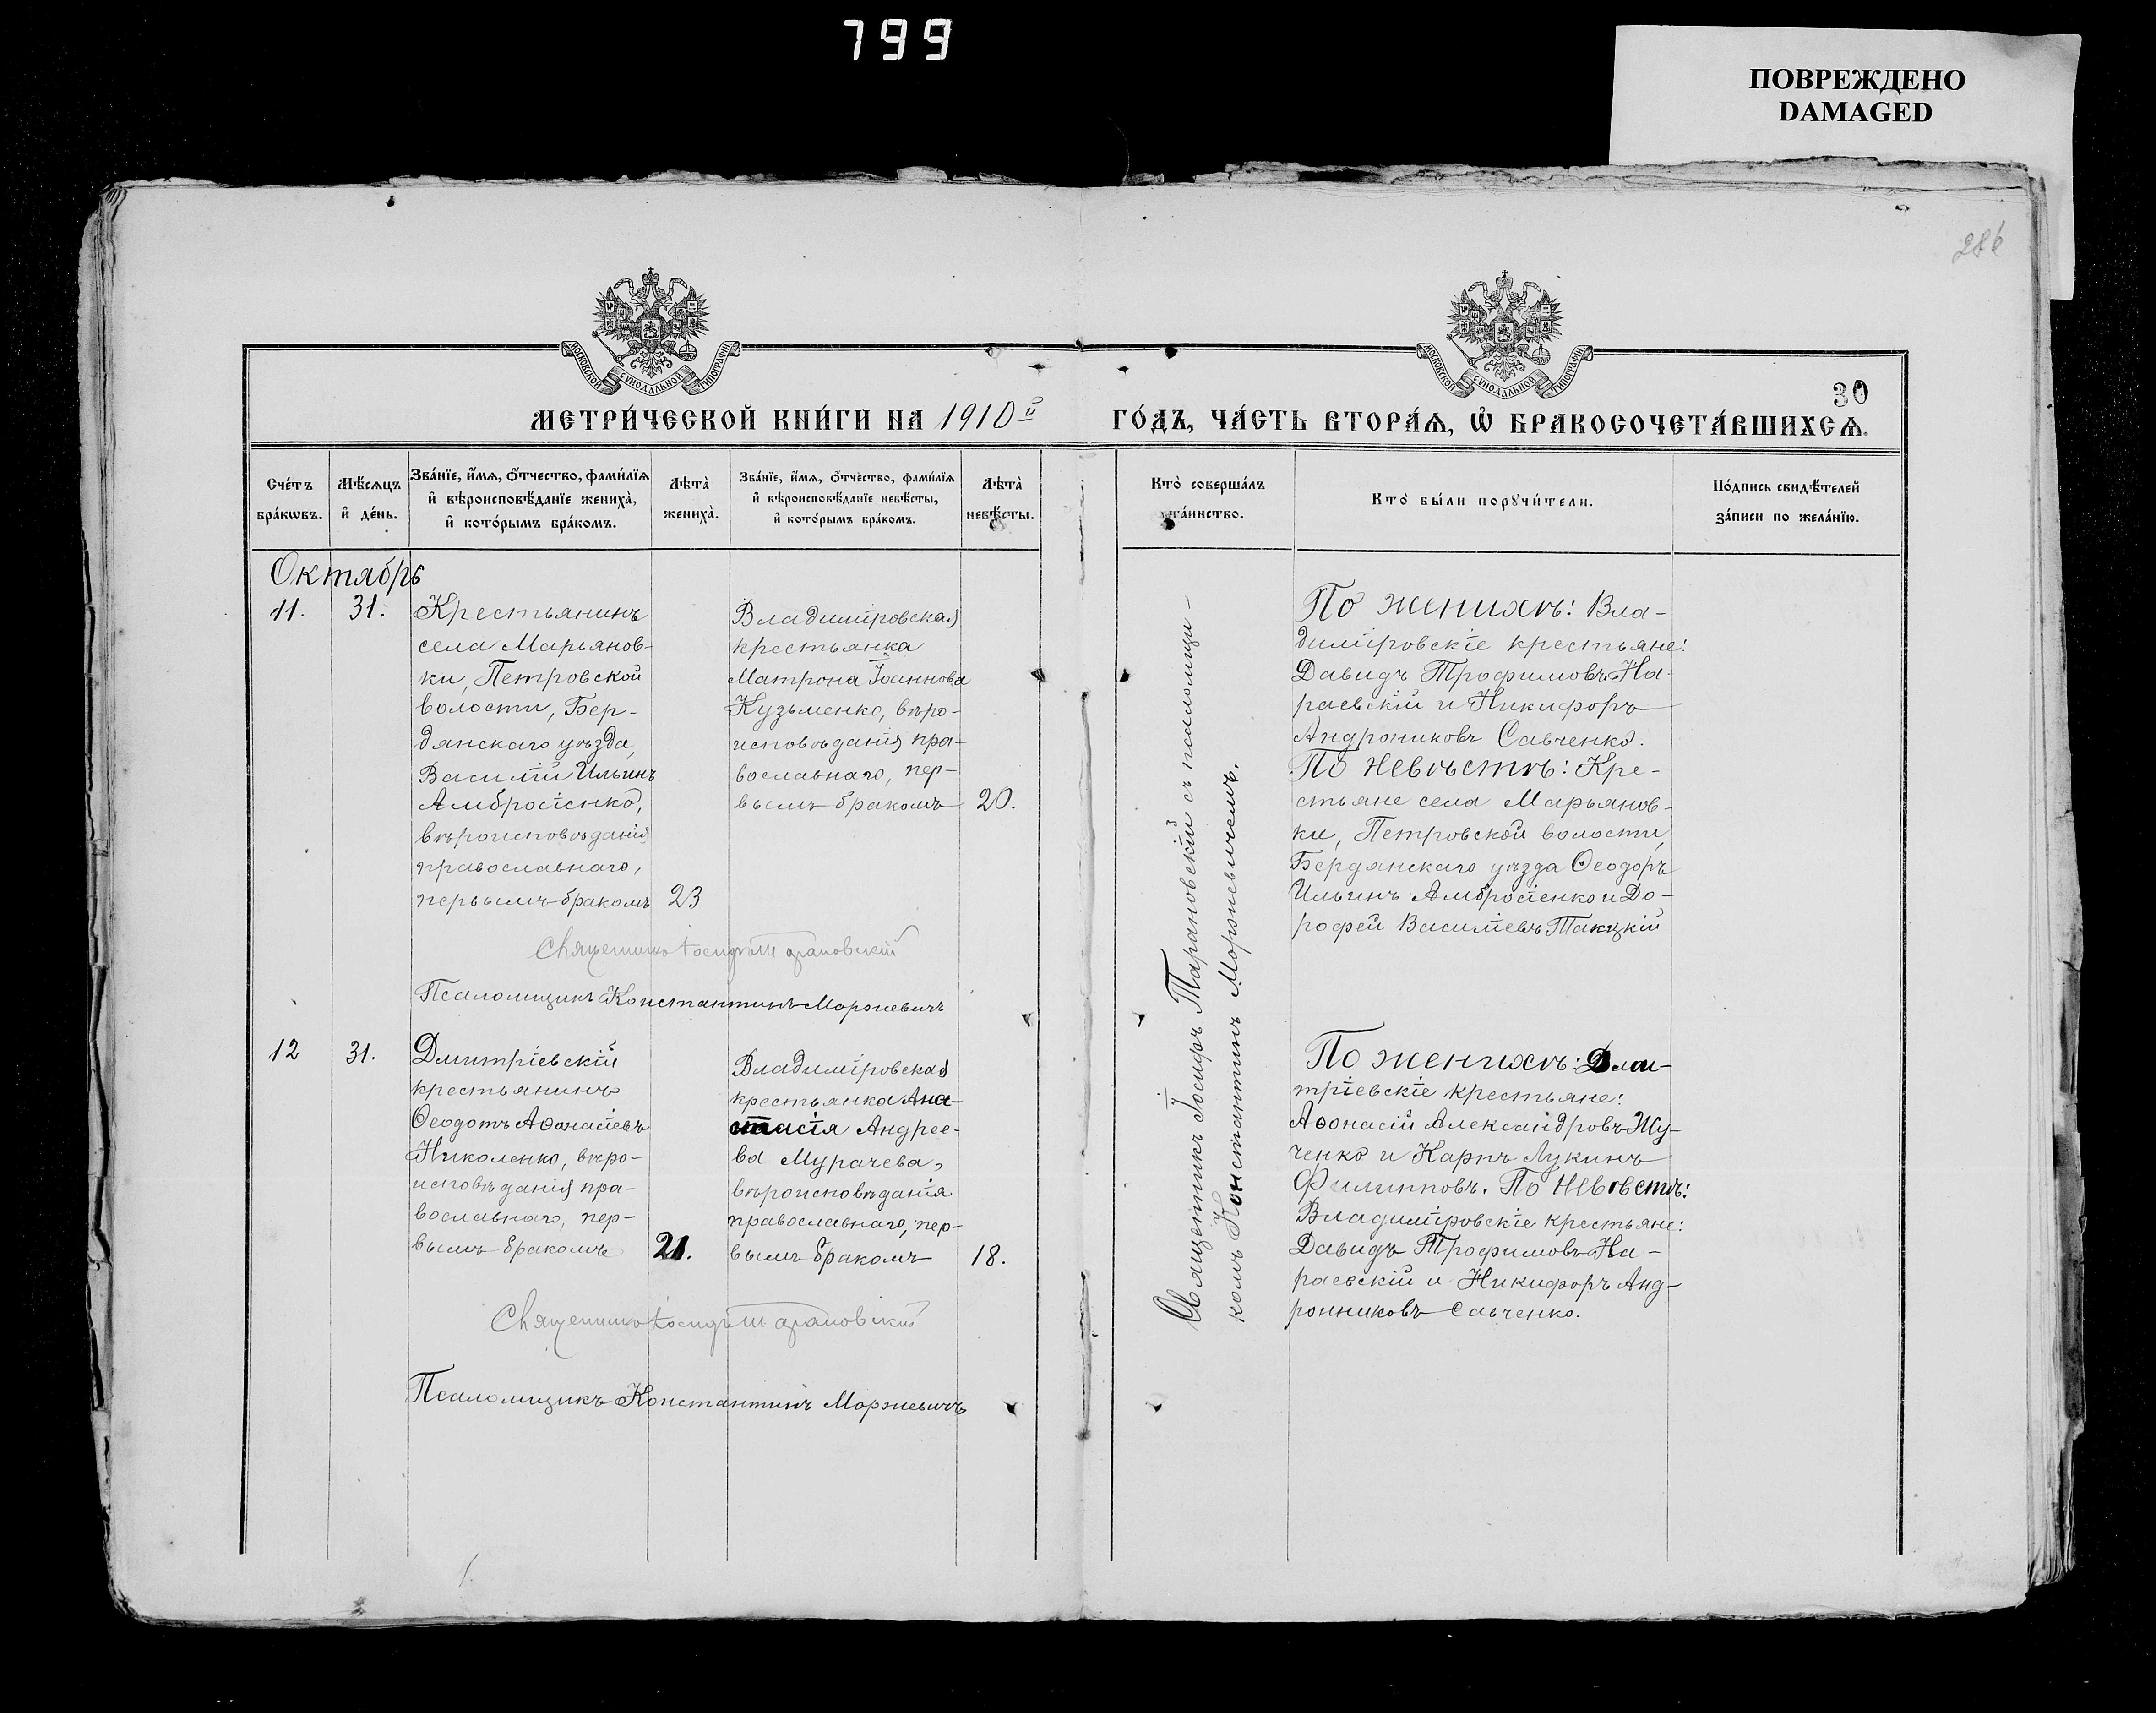 799
ПОВРЕЖДЕНО
DAMAGED
286
МОСКОВСКОЙ СѴНОДАЛЬНОЙ ТИПОГРАФІИ
МОСКОВСКОЙ СѴНОДАЛЬНОЙ ТИПОГРАФІИ
30
МЕТРИ́ЧЕСКОЙ КНИ́ГИ НА 1910й ГО́ДЪ, ЧА́СТЬ ВТОРА́Ѧ, Ѡ БРАКОСОЧЕТА́ВШИХСѦ.
Сче́тъ
бра́кѡвъ.
Мѣ́сѧцъ
и де́нь.
Зва́нїе, и́мѧ, о́тчество, фами́лїѧ
и вѣроисповѣ́данїе жениха̀,
и кото́рымъ бра́комъ.
Лѣта̀
жениха̀.
Зва́нїе, и́мѧ, о́тчество, фами́лїѧ
и вѣроисповѣ́данїе невѣ́сты,
и кото́рымъ бра́комъ.
Лѣта̀
невѣ́сты.
Кто̀ соверша́лъ
та́инство.
Кто̀ бы́ли порꙋчи́тели.
По́дпись свидѣ́телей
за́писи по жела́нїю.
Октябрь
11.
31.
Крестьянинъ
села Марьянов-
ки, Петровской
волости, Бер-
дянскаго уѣзда,
Василій Ильинъ
Амбросіенко,
вѣроисповѣданія
православнаго,
первымъ бракомъ
23
Владимировская
крестьянка
Матрона Іоаннова
Кузьменко, вѣро-
исповѣданія пра-
вославнаго, пер-
вымъ бракомъ
20.
Священникъ Іосифъ Тарановскій съ псаломщи-
комъ Константинъ Моржевичемъ.
По женихѣ: Вла-
димировскіе крестьяне:
Давидъ Трофимовъ На-
раевскій и Никифоръ
Андрониковъ Савченко.
По невѣстѣ: Кре-
стьяне села Марьянов-
ки, Петровской волости,
Бердянскаго уѣзда Ѳеодоръ
Ильинъ Амбросіенко и До-
рофей Василіевъ
Священникъ Іосифъ Тарановскій
Псаломщикъ Константинъ Моржевичъ
12
31.
Дмитріевскій
крестьянинъ
Ѳеодотъ Аѳанасіевъ
Николенко, вѣро-
исповѣданія пра-
вославнаго, пер-
вымъ бракомъ
21.
Владимировская
крестьянка Ана-
стасія Андрее-
ва Мурачева,
вѣроисповѣданія
православнаго, пер-
вымъ бракомъ
18.
По женихѣ: Дми-
тріевскіе крестьяне:
Аѳонасій Александровъ Жу-
ченко и Карпъ Лукинъ
Филипповъ. По невѣстѣ:
Владимировскіе крестьяне:
Давидъ Трофимовъ На-
раевскій и Никифоръ Анд-
ронниковъ Савченко.
Священникъ Іосифъ Тарановскій
Псаломщикъ Константинъ Моржевичъ